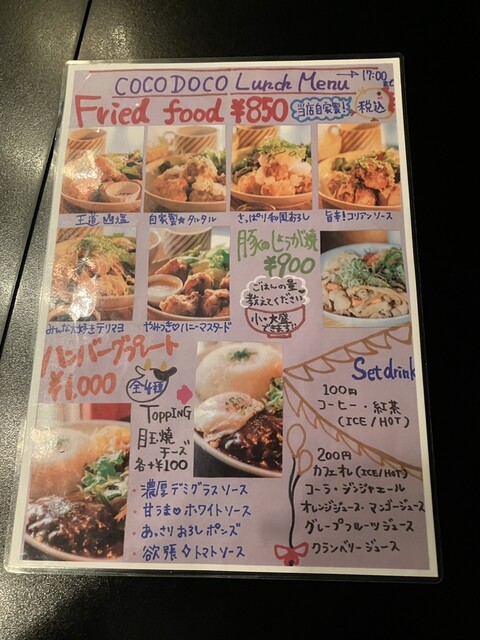 COCO DOCO Lunch Menu → 17:00
Fried food ¥850 当店自家製! 税込
王道 肉塩
自家製☆タルタル
さっぱり和風おろし
旨辛!コリアンソース
みんな大好きテリマヨ
やみつき♡ハニーマスタード
豚のしょうが焼
¥900
ごはんの量
教えてください
小・大盛
できます!!
ハンバーグプレート
¥1,000
全4種
TOPPING
目玉焼
チーズ
各+¥100
・濃厚デミグラスソース
・甘うま♡ホワイトソース
・あっさりおろしポンズ
・欲張りトマトソース
Set drink
100円
コーヒー・紅茶
(ICE/HOT)
200円
カフェオレ(ICE/HOT)
コーラ・ジンジャエール
オレンジジュース・マンゴージュース
グレープフルーツジュース
クランベリージュース